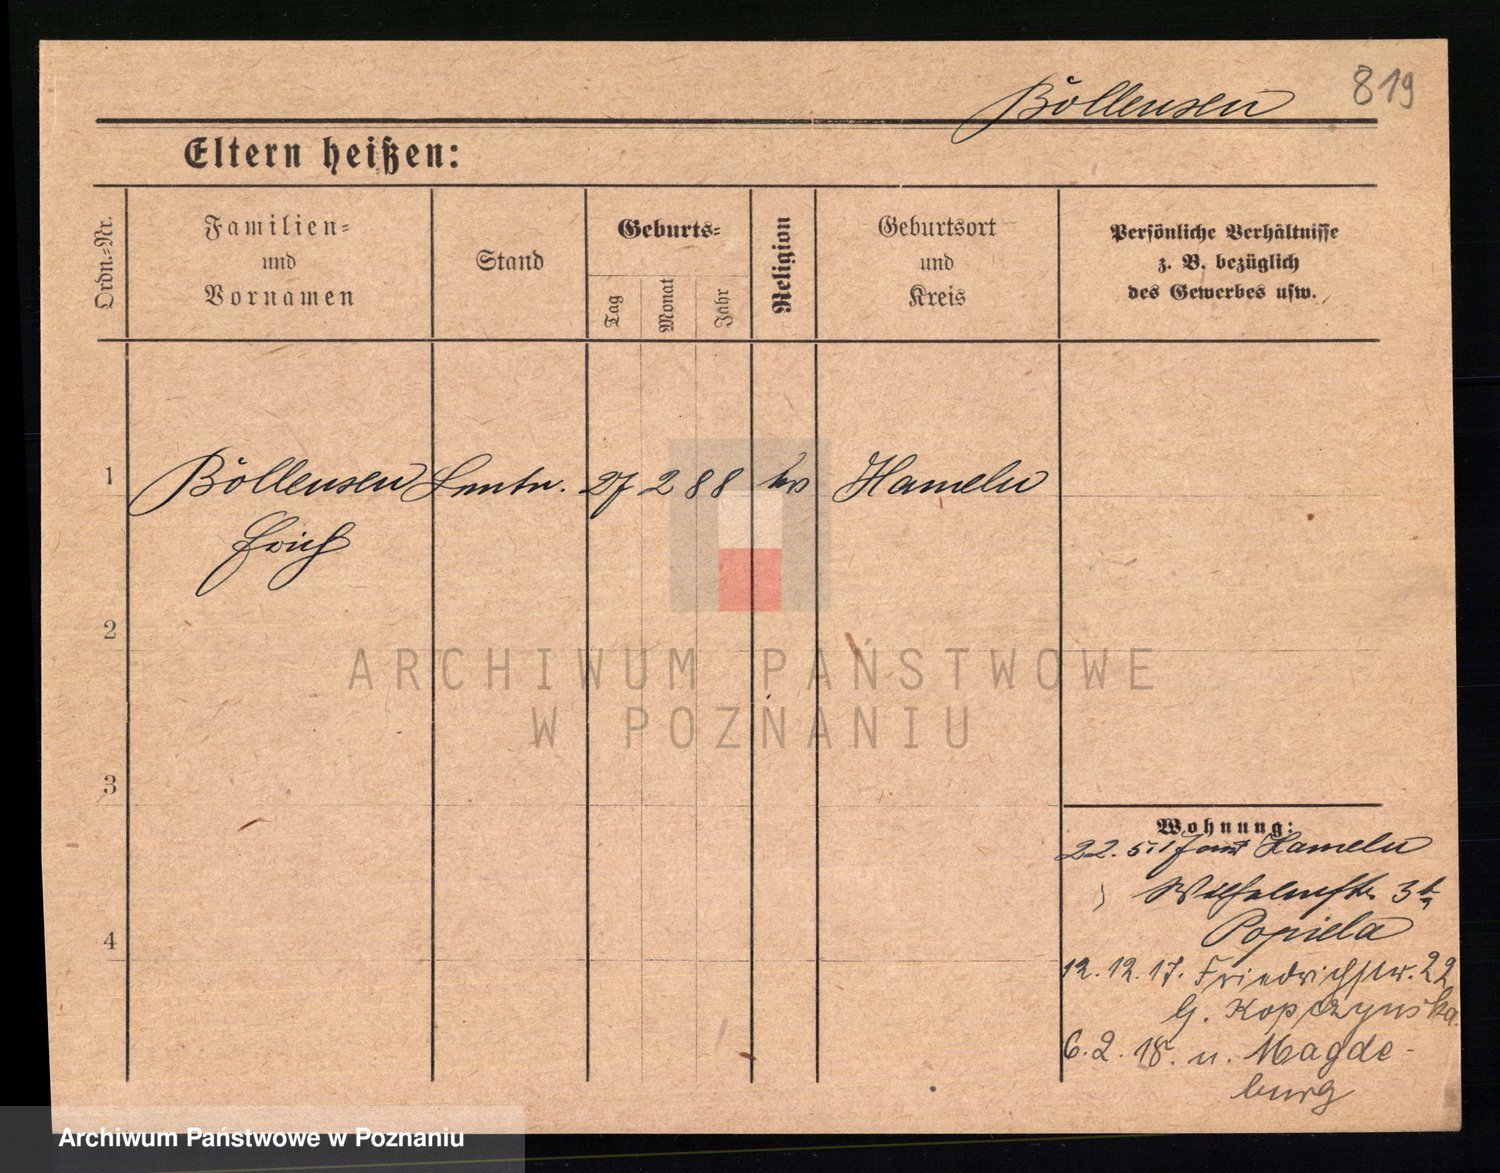 819
Böllensen
Eltern heißen:
Ordn.-Nr.
Familien-
und
Vornamen
Stand
Geburts-
Tag
Monat
Jahr
Religion
Geburtsort
und
Kreis
Persönliche Verhältnisse
z. B. bezüglich
des Gewerbes usw.
1 Böllensen 27 2 88 Hameln
Erich
2
3
4
Wohnung:
22. 5. Hameln
Wilhelmstr. 3
Popiela
12. 12. 17. Friedrichstr. 22
b. Kopczynska
6. 2. 18. n. Magde-
burg
ARCHIWUM PAŃSTWOWE
W POZNANIU
Archiwum Państwowe w Poznaniu